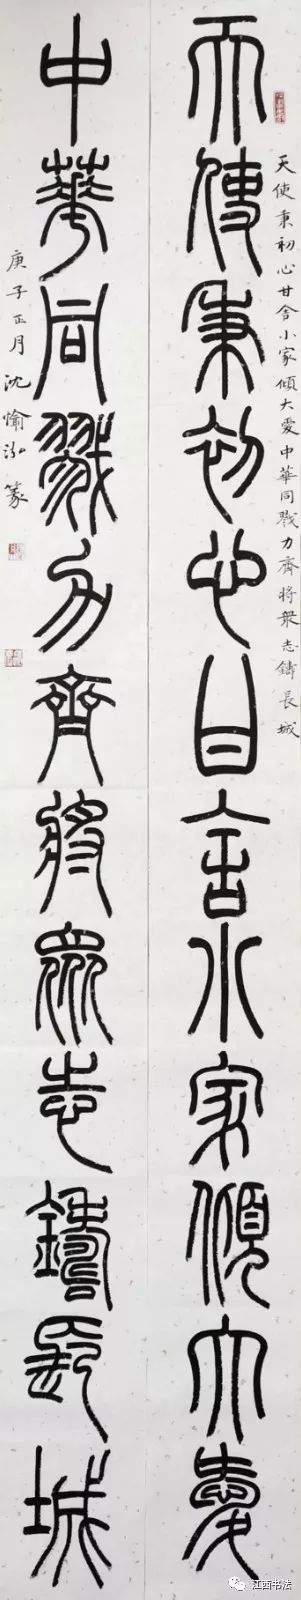 天使秉初心甘舍小家傾大愛
天使秉初心甘舍小家傾大愛中華同戮力齊將衆志鑄長城
中華同戮力齊將衆志鑄長城
庚子正月沈愉泓篆
江西书法